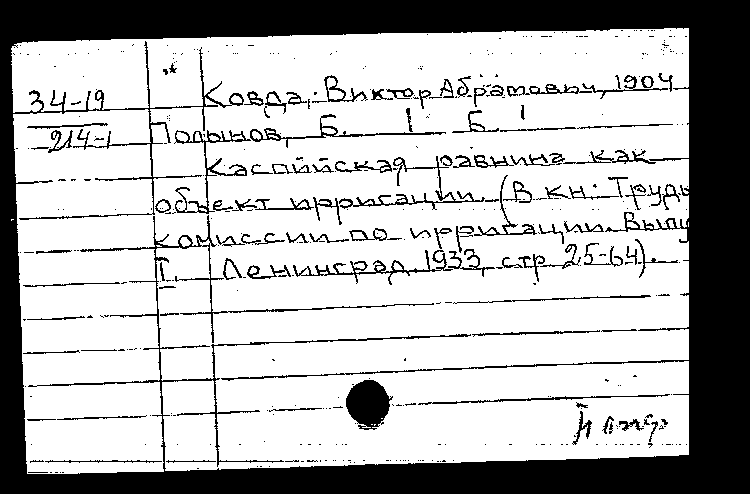 34-19
214-1
Ковда, Виктор Абрамович, 1904
Полынов, Б. Б.
Каспийская равнина как
объект ирригации. (В кн: Труды
комиссии по ирригации. Выпу
I. Ленинград. 1933, стр 25-64).